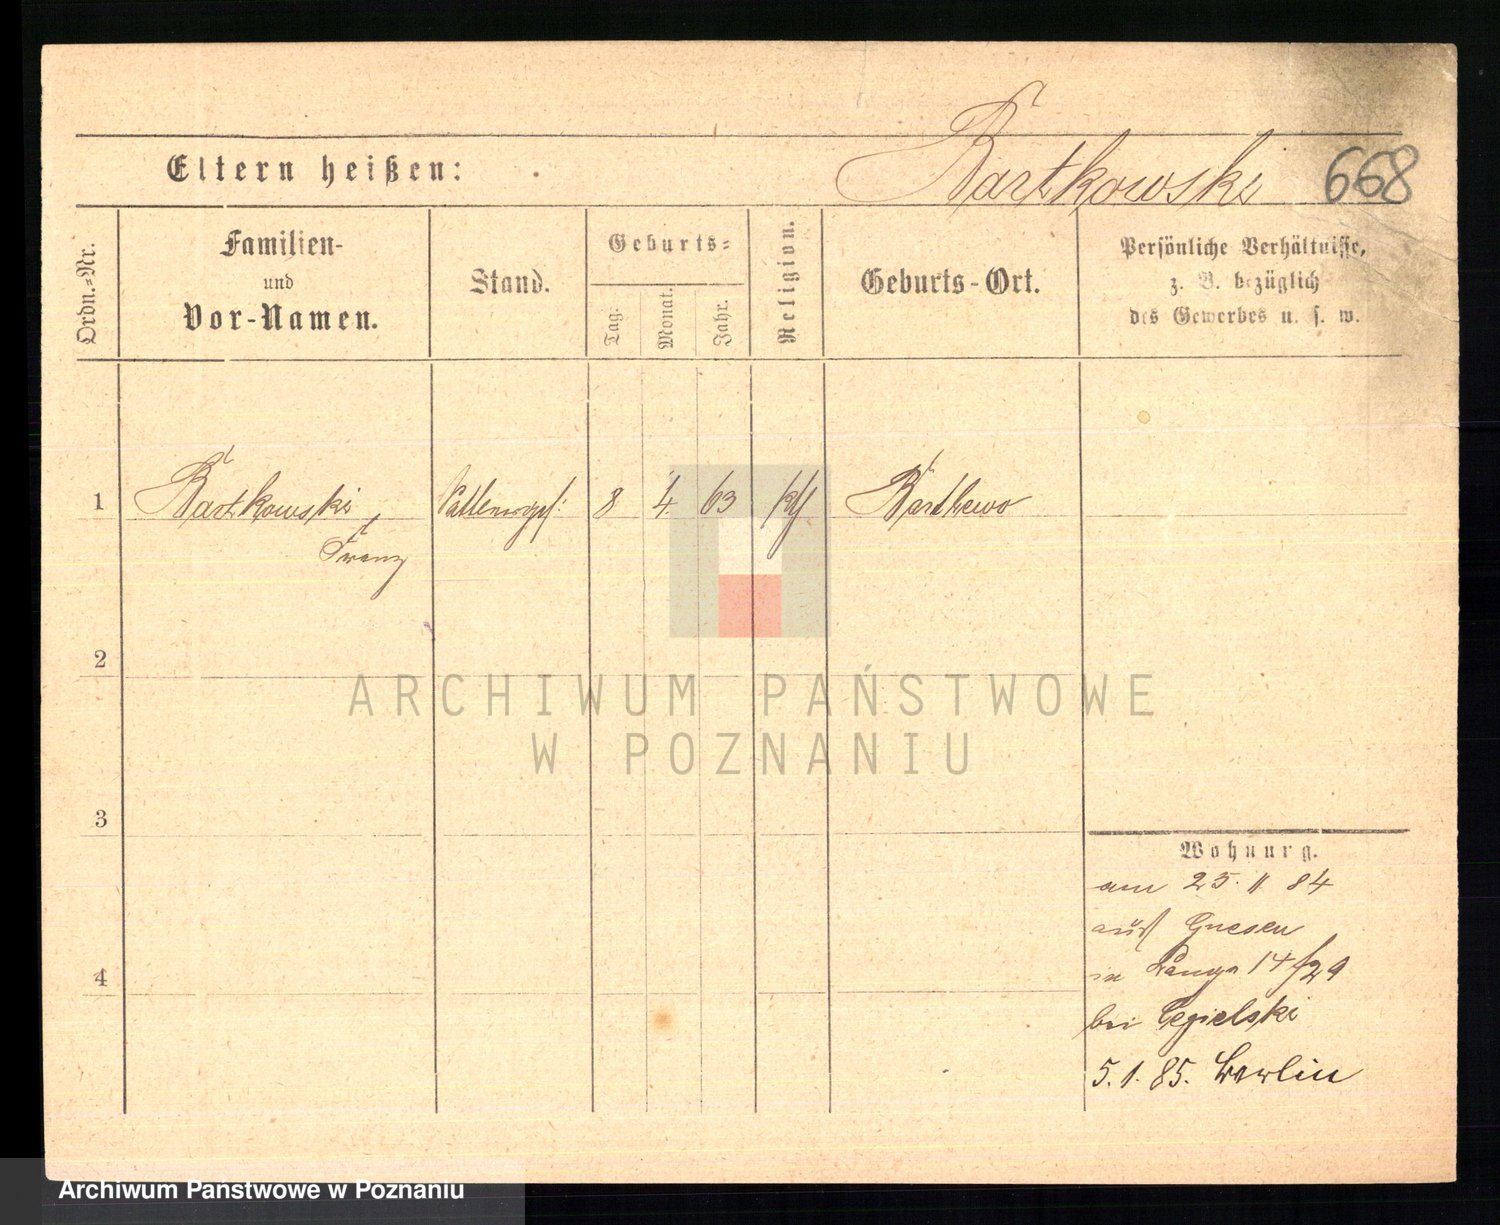 Bartkowski 668
Eltern heißen:
Ordn.-Nr.
Familien-
und
Vor-Namen.
Stand.
Geburts-
Tag.
Monat.
Jahr.
Religion.
Geburts-Ort.
Persönliche Verhältnisse,
z. B. bezüglich
des Gewerbes u. s. w.
1 Bartkowski 8 4 63 Bartkewo
Franz
2
3
4
Wohnung.
am 25. 11 84
aus Gnesen
in Lange 14/29
bei Cegielski
5. 1. 85. Berlin
ARCHIWUM PAŃSTWOWE
W POZNANIU
Archiwum Państwowe w Poznaniu